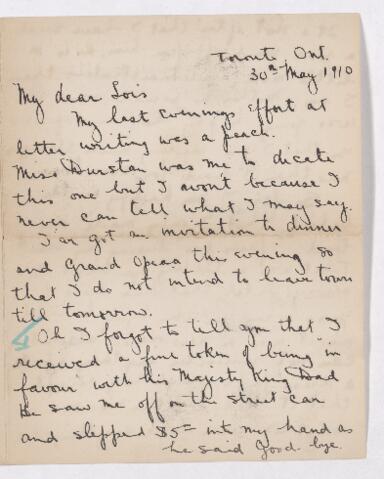 Toronto Ont.
30th May 1910
My dear Lois
My last evenings effort at
letter writing was a peach.
Miss Durstan was me to dicate
this one but I won't because I
never can tell what I may say.
I've got an invitation to dinner
and Grand Opera this evening so
that I do not intend to leave town
till tomorrow.
Oh I forgot to till you that I
received a fine token of being "in
favour" with his Majesty King Dad
He saw me off on the street car
and slipped $5= into my hand as
he said Good-bye.